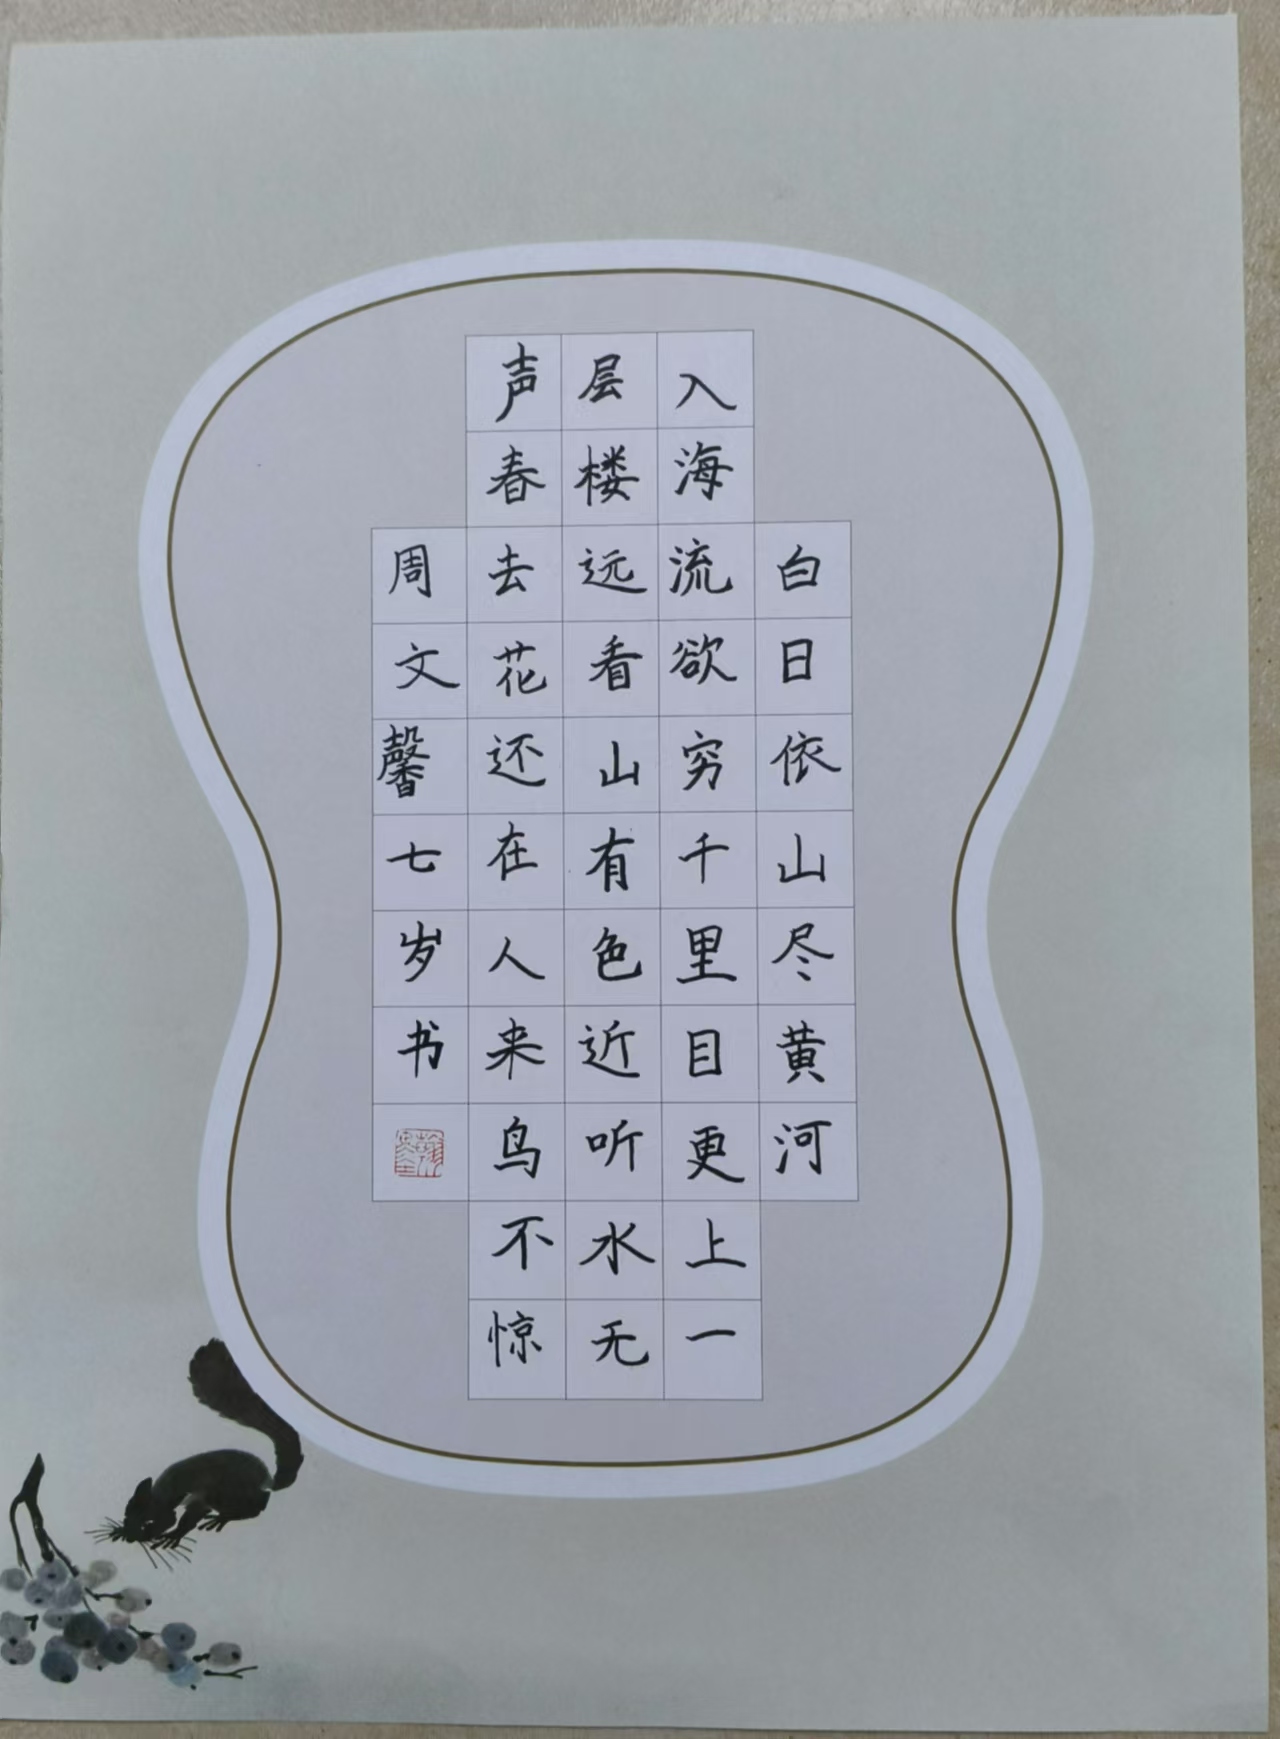 白日依山尽黄河
入海流欲穷千里目更上一
层楼远看山有色近听水无
声春去花还在人来鸟不惊
周文馨七岁书